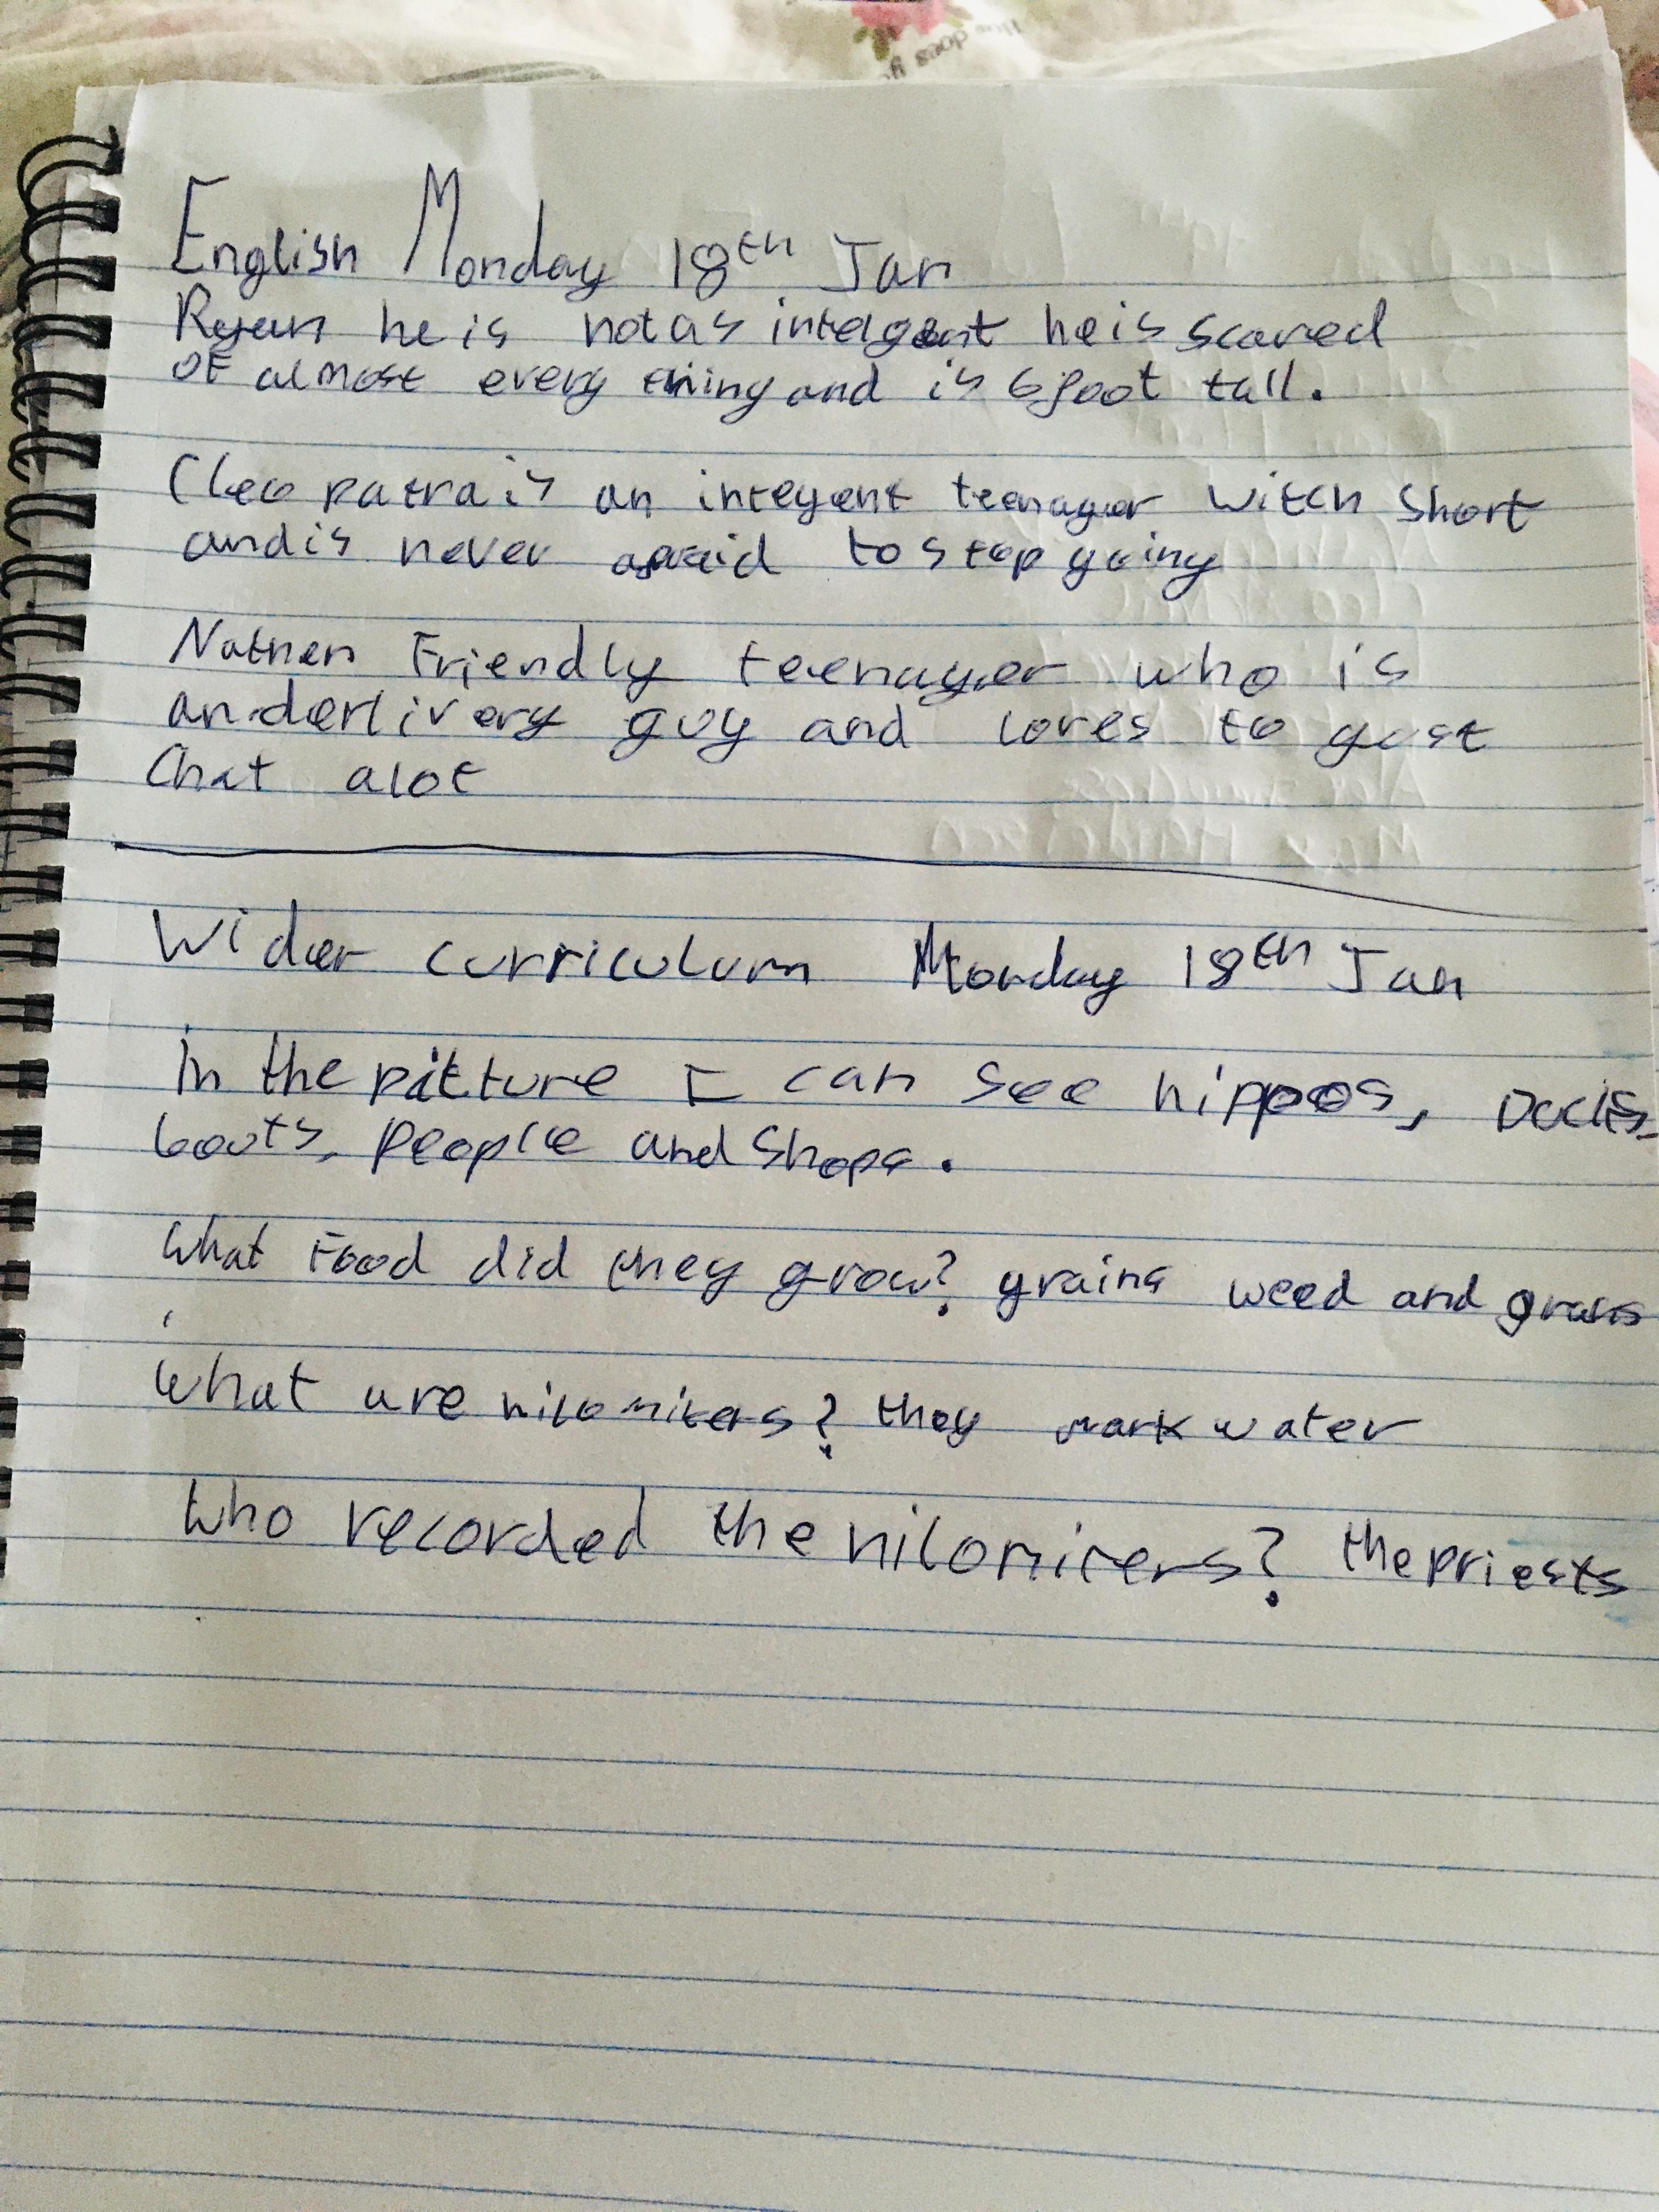 How does y
English Monday 18th Jan
Ryan he is not as intelgent he is scared
of almost every thing and is 6 foot tall.
Cleo patra is an integent teenager witch short
and is never afraid to stop going
Nathen Friendly teenager who is
an derlivery guy and loves to gust
Chat alot
Wider curriculum Monday 18th Jan
in the pitture I can see hippos,
boats, people and shops.
what Food did they grow? grains weed and grass
what are nilomiters? they mark water
who recorded the nilomiters? the priests